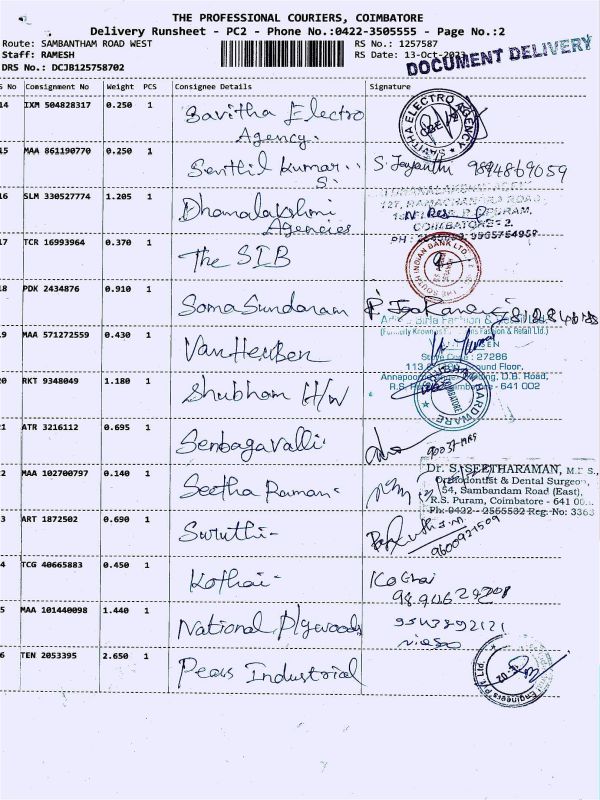 THE PROFESSIONAL COURIERS, COIMBATORE
Delivery Runsheet - PC2 - Phone No.:0422-3505555 - Page No.:2
Route: SAMBANTHAM ROAD WEST RS No.: 1257587
Staff: RAMESH RS Date: 13-Oct-2023
DRS No.: DCJB125758702
DOCUMENT DELIVERY
S No Consignment No Weight PCS Consignee Details Signature
14 IXM 504828317 0.250 1 Savitha Electro
Agency.
SAVITHA ELECTRO AGENCY
15 MAA 861190770 0.250 1 Senthil Kumar S. S. Jayanthi 9894869059
16 SLM 330527774 1.205 1 Dhanalakshmi
Agencies
127, RAMACHANDRA ROAD,
COIMBATORE-2.
17 TCR 16993964 0.370 1 The SIB
THE SOUTH INDIAN BANK LTD.
18 PDK 2434876 0.910 1 Soma Sundaram
19 MAA 571272559 0.430 1 Van Heusen
Fashion & Retail Ltd.)
Store Code : 27286
Ground Floor,
D.B. Road,
R.S. Coimbatore - 641 002
20 RKT 9348049 1.180 1 Shubham H/W
SHUBHAM HARDWARE
COIMBATORE
21 ATR 3216112 0.695 1 Senbagavalli
22 MAA 102700797 0.140 1 Seetha Raman
Dr. S. SEETHARAMAN, M.D.S.,
Orthodontist & Dental Surgeon,
54, Sambandam Road (East),
R.S. Puram, Coimbatore - 641 00
Ph: 0422 - 2555532 Reg. No: 3363
23 ART 1872502 0.690 1 Suruthi
9600921509
24 TCG 40665883 0.450 1 Kothai Kothai
25 MAA 101440098 1.440 1 National Plywoods
26 TEN 2053395 2.650 1 Pears Industrial
Engineers Pvt. Ltd.